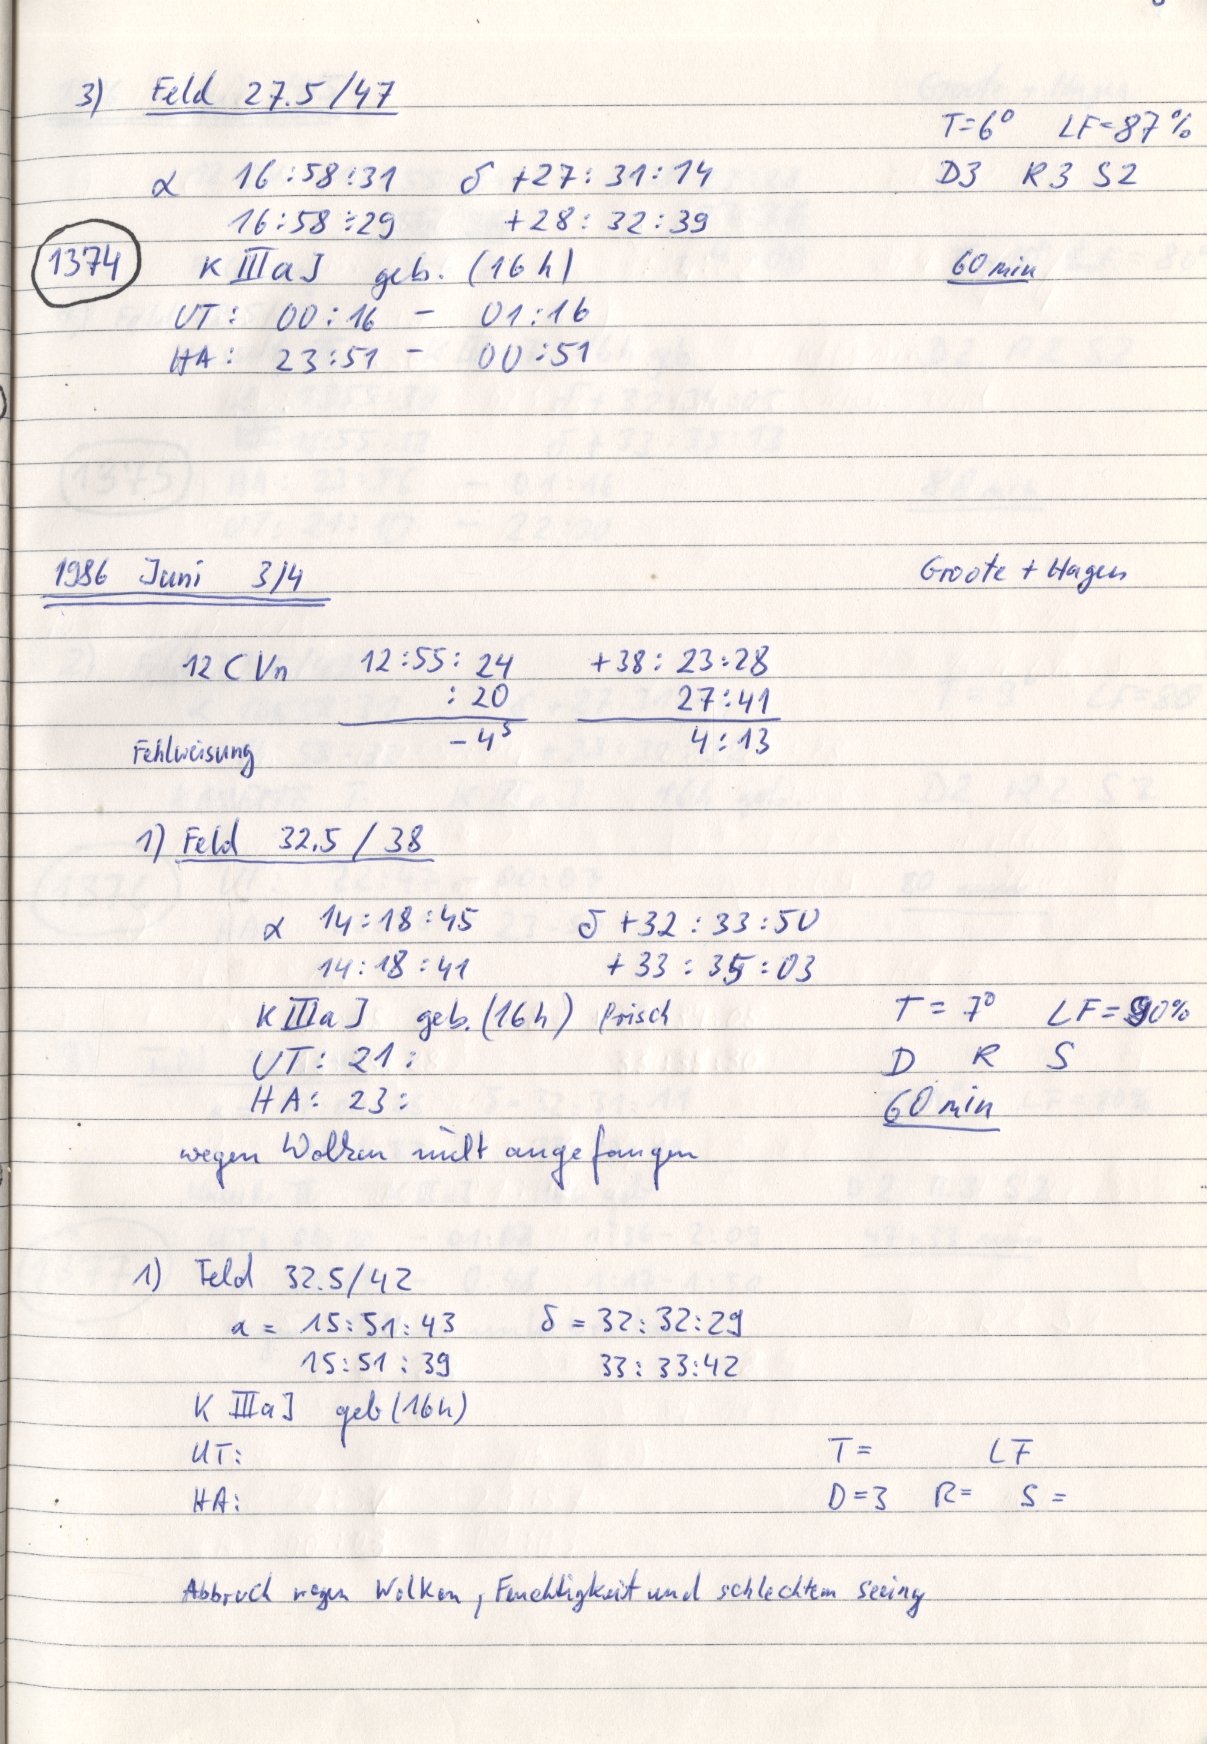 3) Feld 27.5/47
T=6° LF=87%
α 16:58:31 δ +27:31:14 D3 R3 S2
16:58:29 +28:32:39
1374 K IIIaJ geb. (16h) 60 min
UT: 00:16 - 01:16
HA: 23:51 - 00:51
1986 Juni 3/4 Groote + Hagen
12 CVn 12:55:24 +38:23:28
:20 27:41
Fehlweisung -4s 4:13
1) Feld 32.5/38
α 14:18:45 δ +32:33:50
14:18:41 +33:35:03
K IIIaJ geb. (16h) frisch T=7° LF=90%
UT: 21: D R S
HA: 23: 60 min
wegen Wolken nicht angefangen
1) Feld 32.5/42
α = 15:51:43 δ = 32:32:29
15:51:39 33:33:42
K IIIaJ geb (16h)
UT: T= LF
HA: D=3 R= S=
Abbruch wegen Wolken, Feuchtigkeit und schlechtem seeing